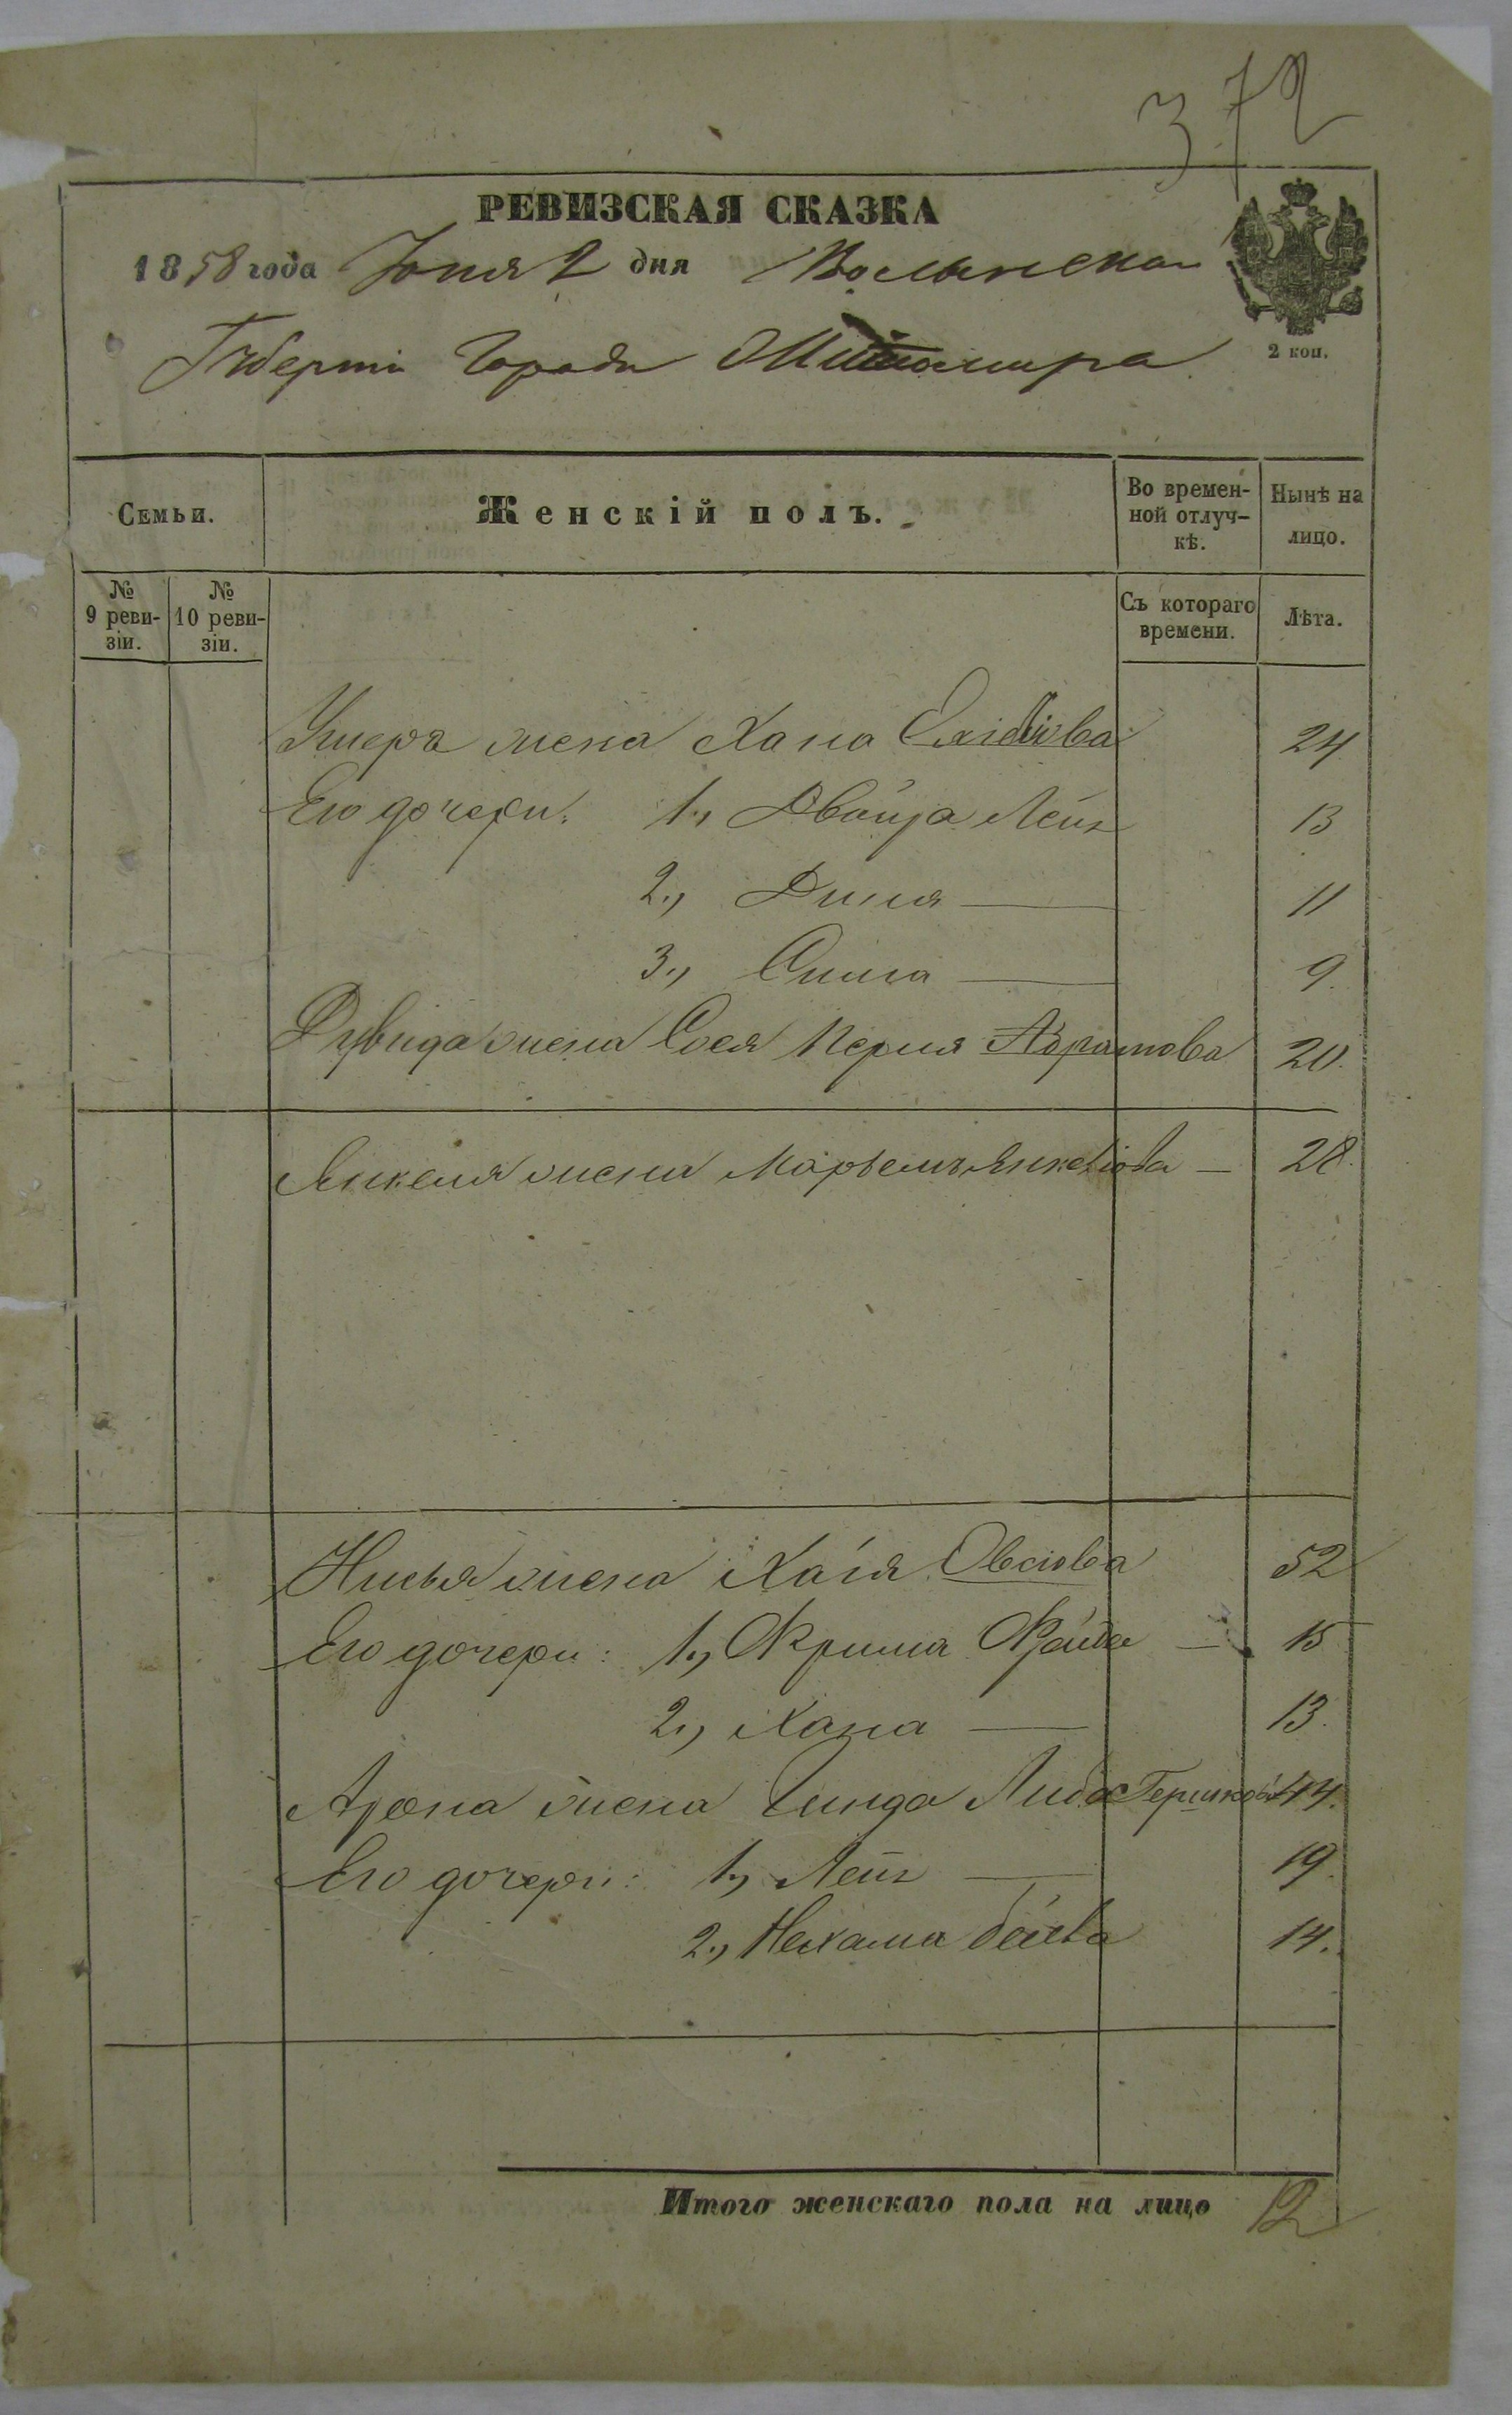 372
РЕВИЗСКАЯ СКАЗКА
1858 года Іюня 2 дня Волынской
Губерніи Города Житомира
2 коп.
Семьи.
Женскій полъ.
Во времен-
ной отлуч-
кѣ.
Нынѣ на
лицо.
№
9 реви-
зіи.
№
10 реви-
зіи.
Съ котораго
времени.
Лѣта.
жена Хана 24
Его дочери: 1., Двойра Лея 13
2., Диня — 11
3., Сима — 9.
Дувида жена Сося Перля Абрамова 20.
Янкеля жена Марьемъ Янкелiова — 28.
жена Хаія Овсiова 52
Его дочери: 1., Фрима Фрейда — 15
2., Хана — 13.
Арона жена Гинда Либа Гершкова 44.
Его дочери: 1., Лея — 19.
2., Нехама бейла 14.
Итого женскаго пола на лицо 12